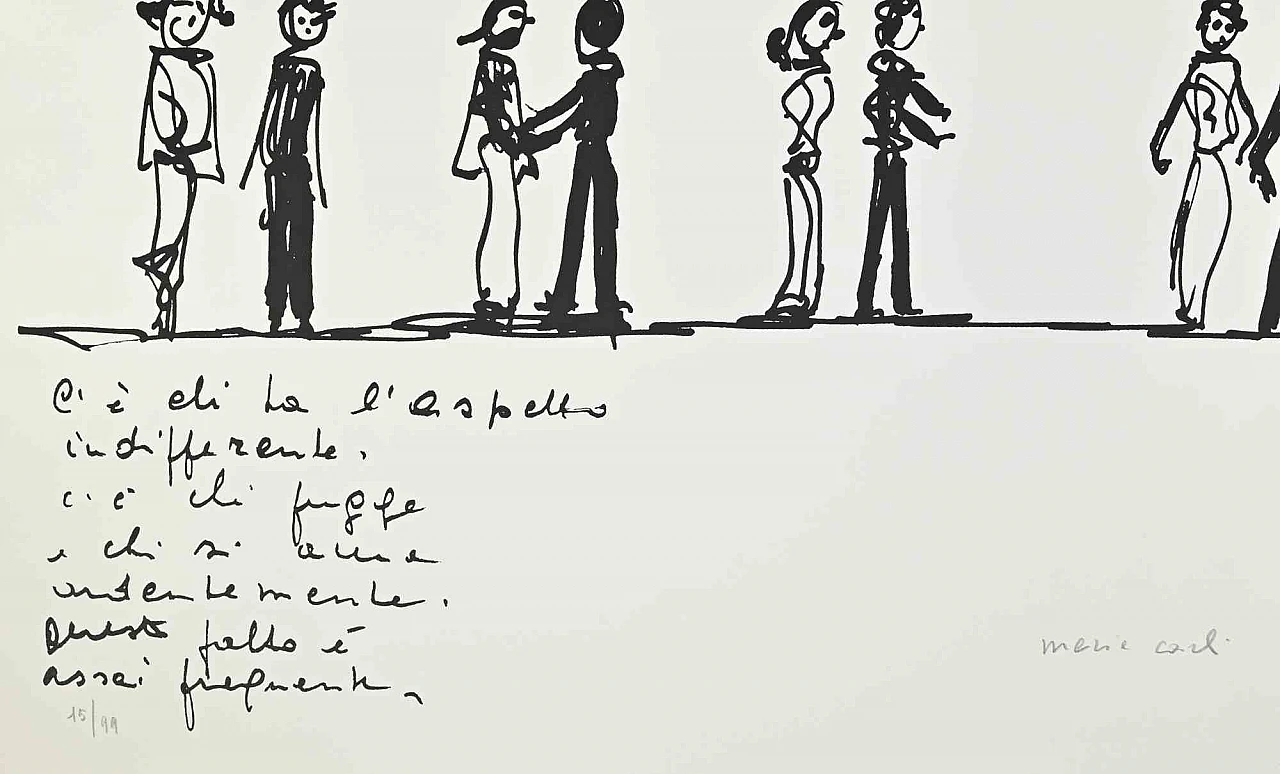 C'è chi ha l'aspetto
indifferente.
c'è chi fugge
e chi si ama
ardentemente.
Questo fatto è
assai frequente.
15/99
maria carli